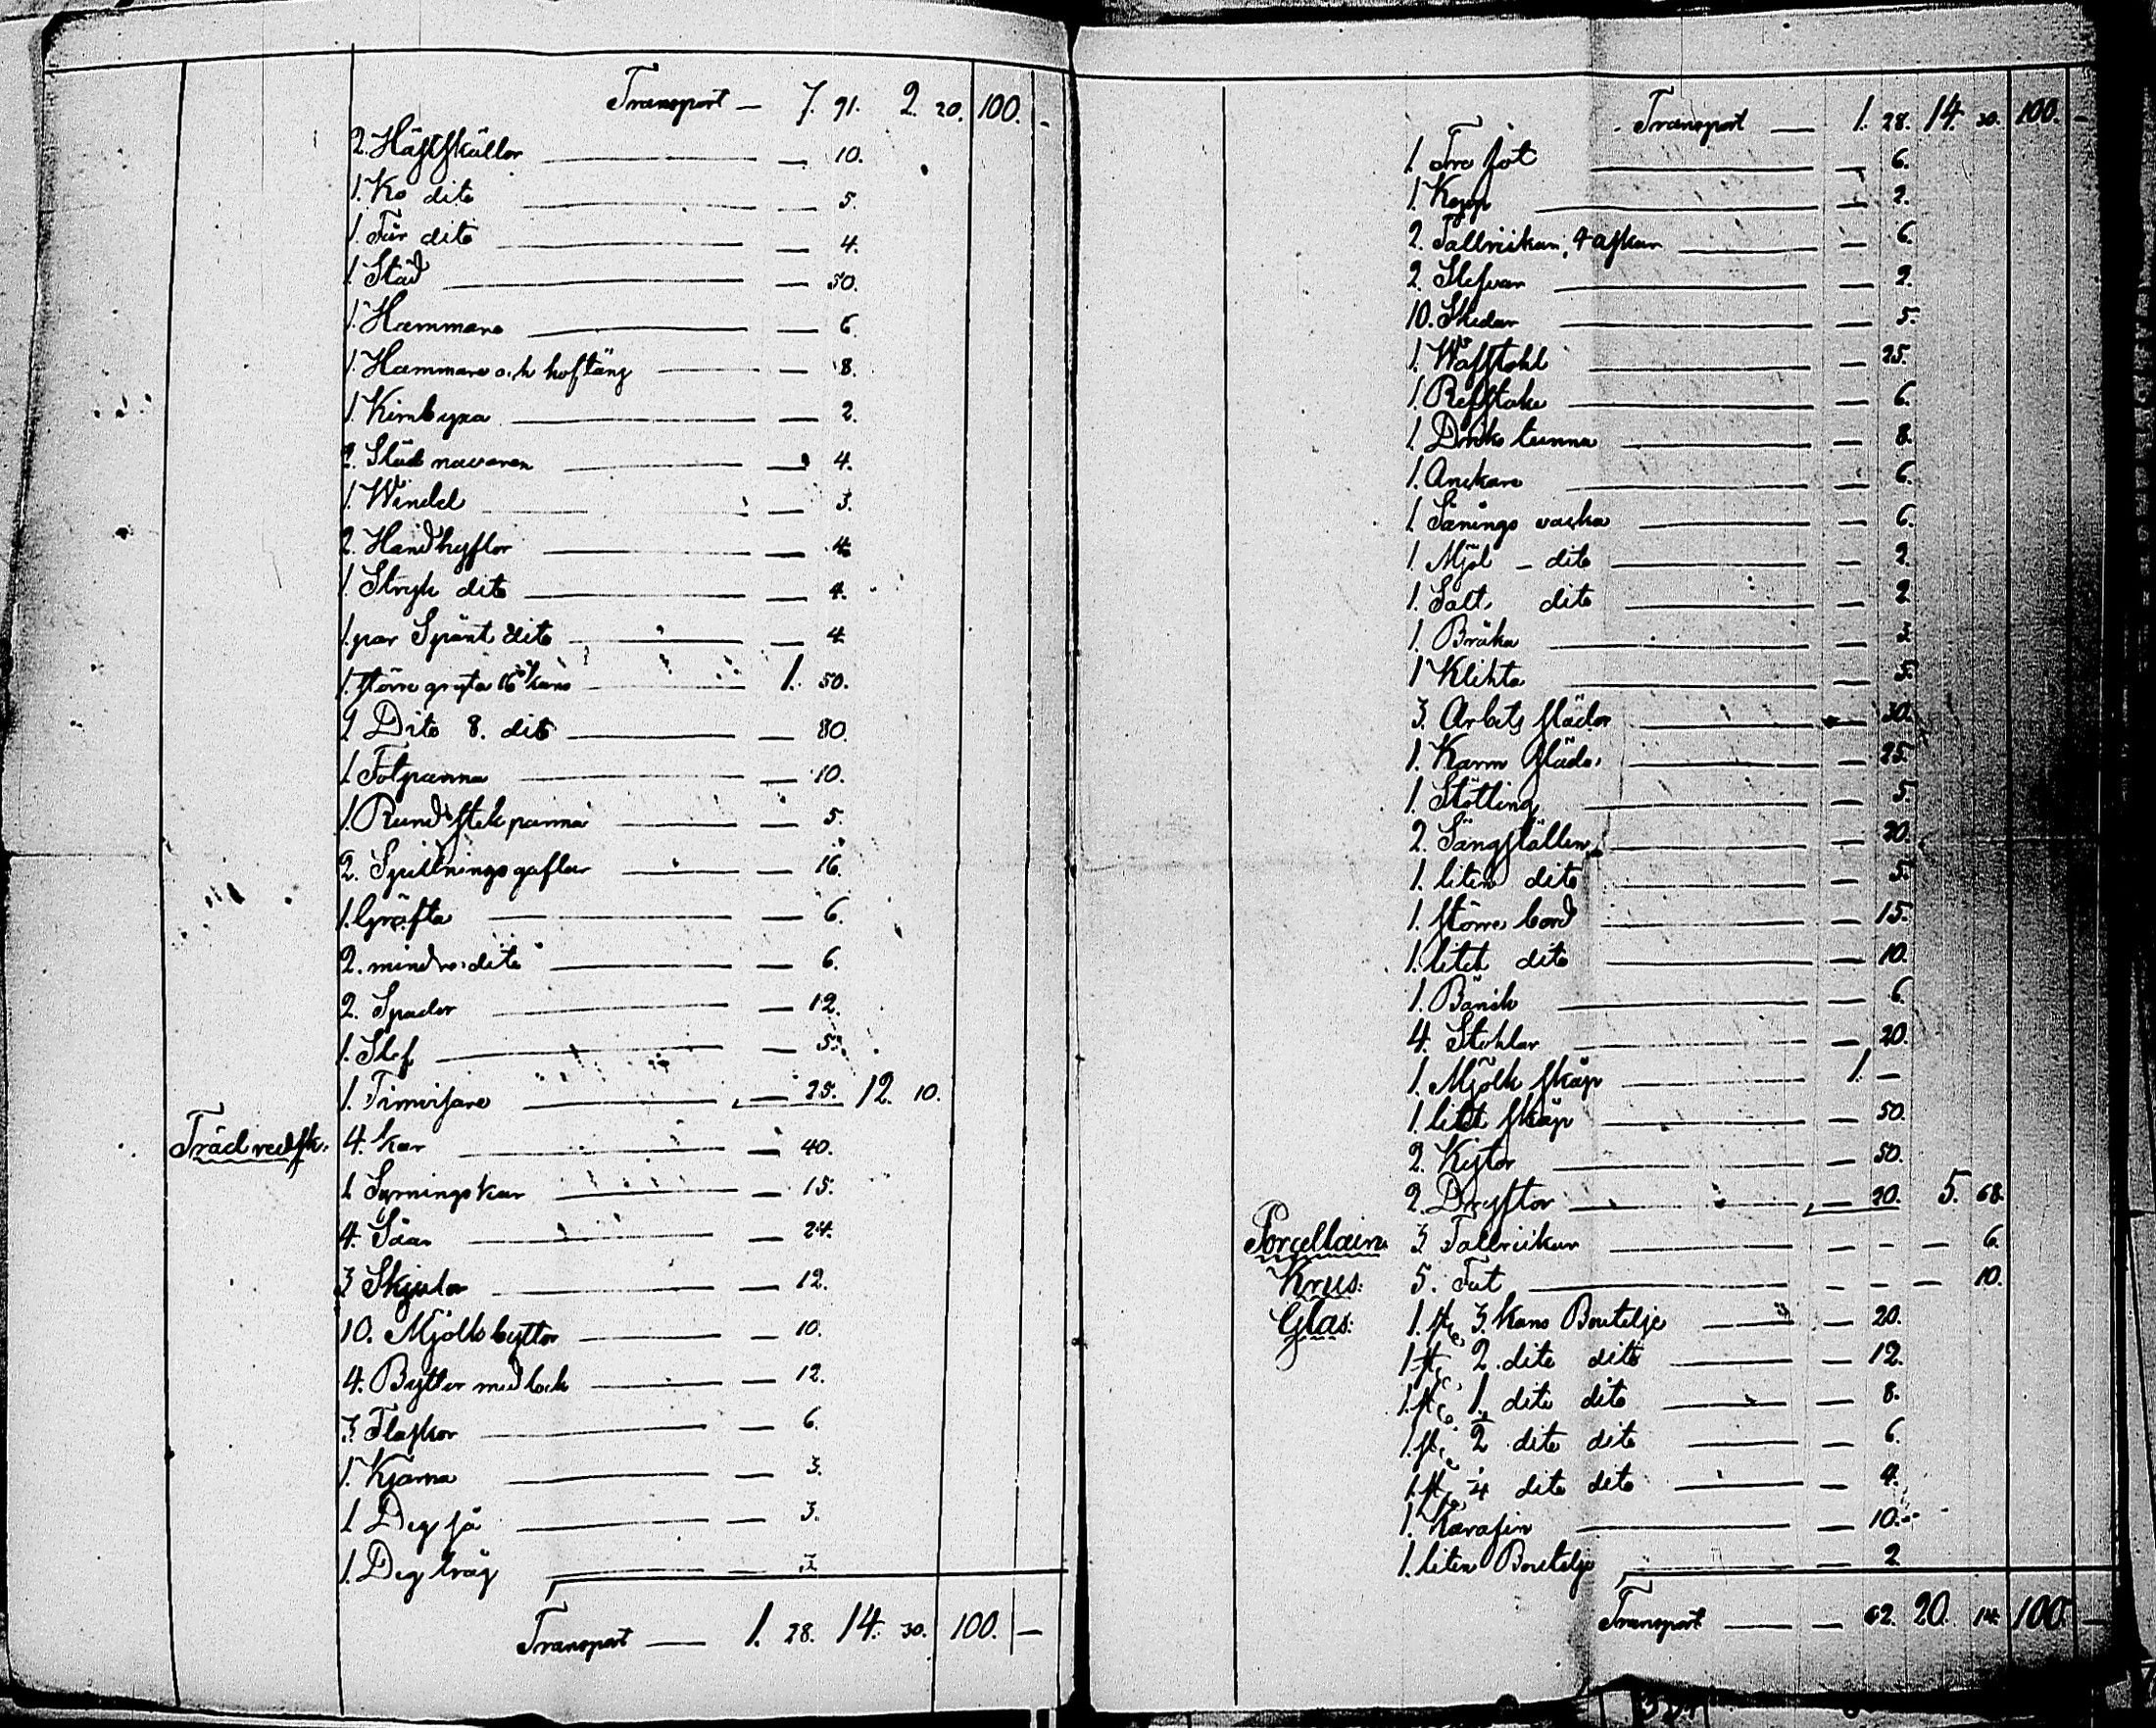 Transport — 7. 91. 2. 20. 100. -
2. Hästskällor — 10.
1. Ko dito — 5.
1. Får dito — 4.
1. Städ — 50.
1. Hammare — 6.
1. Hammare och hoftång — 8.
1. Kimbyxa — 2.
2. Släd navaren — 4.
1. Windel — 3.
2. Handhyflor — 4.
1. Stryk dito — 4.
1. par Spånt dito — 4.
1. större gryta 16 kans — 1. 50.
2 Dito 8. dito — 80.
1 Fotpanna — 10.
1. Rund stek panna — 5.
2. Spillnings gaflar — 16.
1. Gräfta — 6.
2. mindre dito — 6.
2. Spader — 12.
1. Slef — 5.
1. Timvisare — 25. 12. 10.
Träd redsk. 4. kar — 40.
1 Syrningskar — 15.
4. Såar — 24.
3 Skjulor — 12.
10. Mjölkbyttor — 10.
4. Byttor med lock — 12.
3 Flaskor — 6.
1. Kjärna — 3.
1 Deg så — 3.
1. Deg tråg — 3
Transport — 1. 28. 14. 30. 100. —
Transport — 1. 28. 14. 30. 100. -
1. Tre fot — 6.
1. Kopp — 2.
2. Tallrickar, 4 askar — 6.
2. Slefvar — 2.
10. Skedar — 5.
1. Wäfstohl — 25.
1. Refstake — 6.
1. Dricks tunna — 8.
1. Anckare — 6.
1. Sånings vacka — 6.
1. Mjöl - dito — 2.
1. Salt dito — 2
1. Bråka — 2
1 Klihta — 5.
3. Arbets slädor — 30.
1. Karm Släde — 25.
1. Stötting — 5.
2. Sängställen — 20.
1. liten dito — 5.
1. större bord — 15.
1. litet dito — 10.
1. Bänck — 6.
4. Stohlar — 20.
1. Mjölk skåp — 1. —
1. litet skåp — 50.
2. Kistor — 50.
2. Dryftor — 20. 5. 68.
Porcellain 3. Tallrickar — - — 6.
Krus: 5. Fat — - — 10.
Glas: 1. st. 3. kans Boutelje — 20.
1 st. 2. dito dito — 12.
1. st. 1. dito dito — 8.
1. st. 1/2 dito dito — 6.
1. st. 1/4 dito dito — 4.
1. Karafin — 10.
1. liten Boutelje — 2
Transport — 62. 20. 14. 100. —